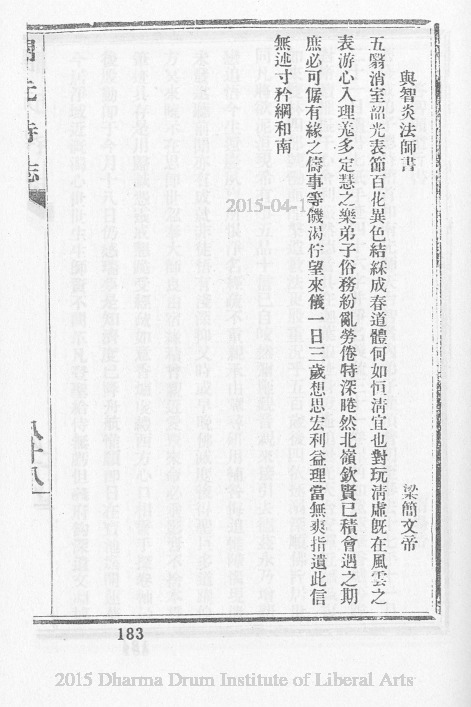 與智炎法師書 梁簡文帝
五翳消空韶光表節百花異色結綵成春道體何如恒清宜也對玩清虛既在風雲之
表游心入理差多定慧之樂弟子俗務紛亂勞倦特深睠然北嶺欽賢已積會遇之期
庶必可孱有緣之儔事等饑渴佇望來儀一日三歲想思宏利益理當無爽指遣此信
無述寸矜綱和南
開元寺志
八十八
183
2015-04-1
2015 Dharma Drum Institute of Liberal Arts